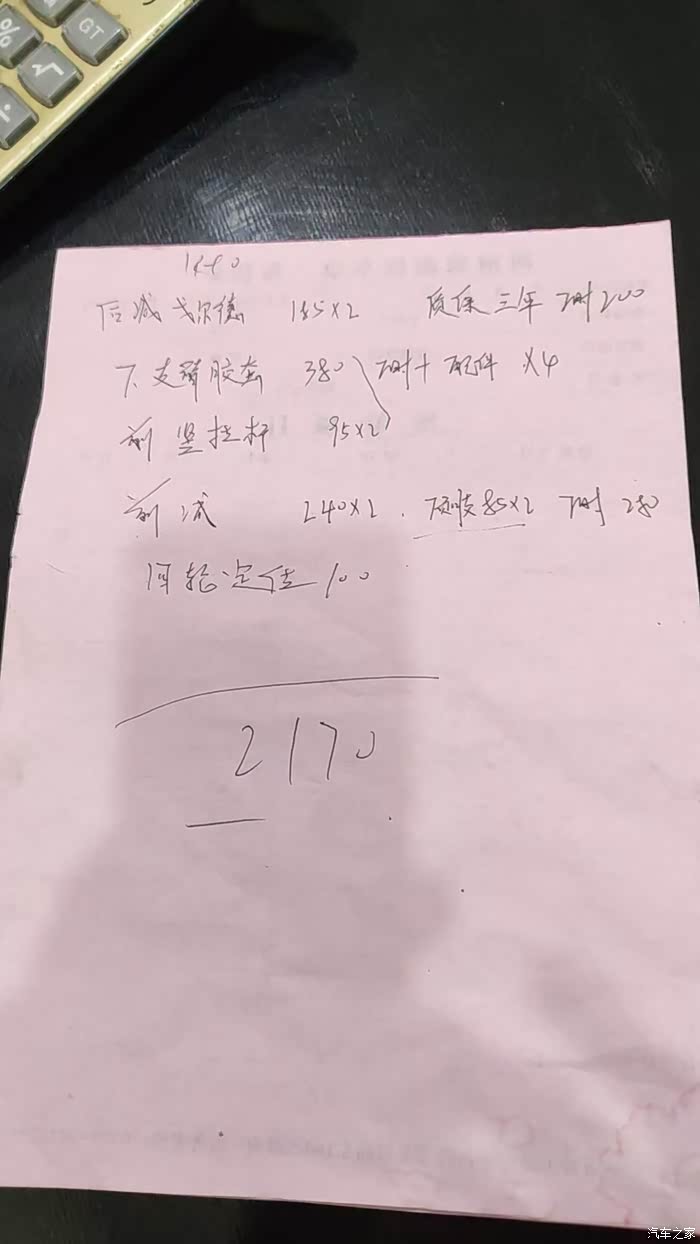 %
GT
√
÷
后减 戈尔德 185×2 质保三年 工时200
下支臂胶套 380 工时+配件 ×4
前竖拉杆 95×2
前减 240×2. 顶胶85×2 工时280
四轮定位 100
2170
汽车之家